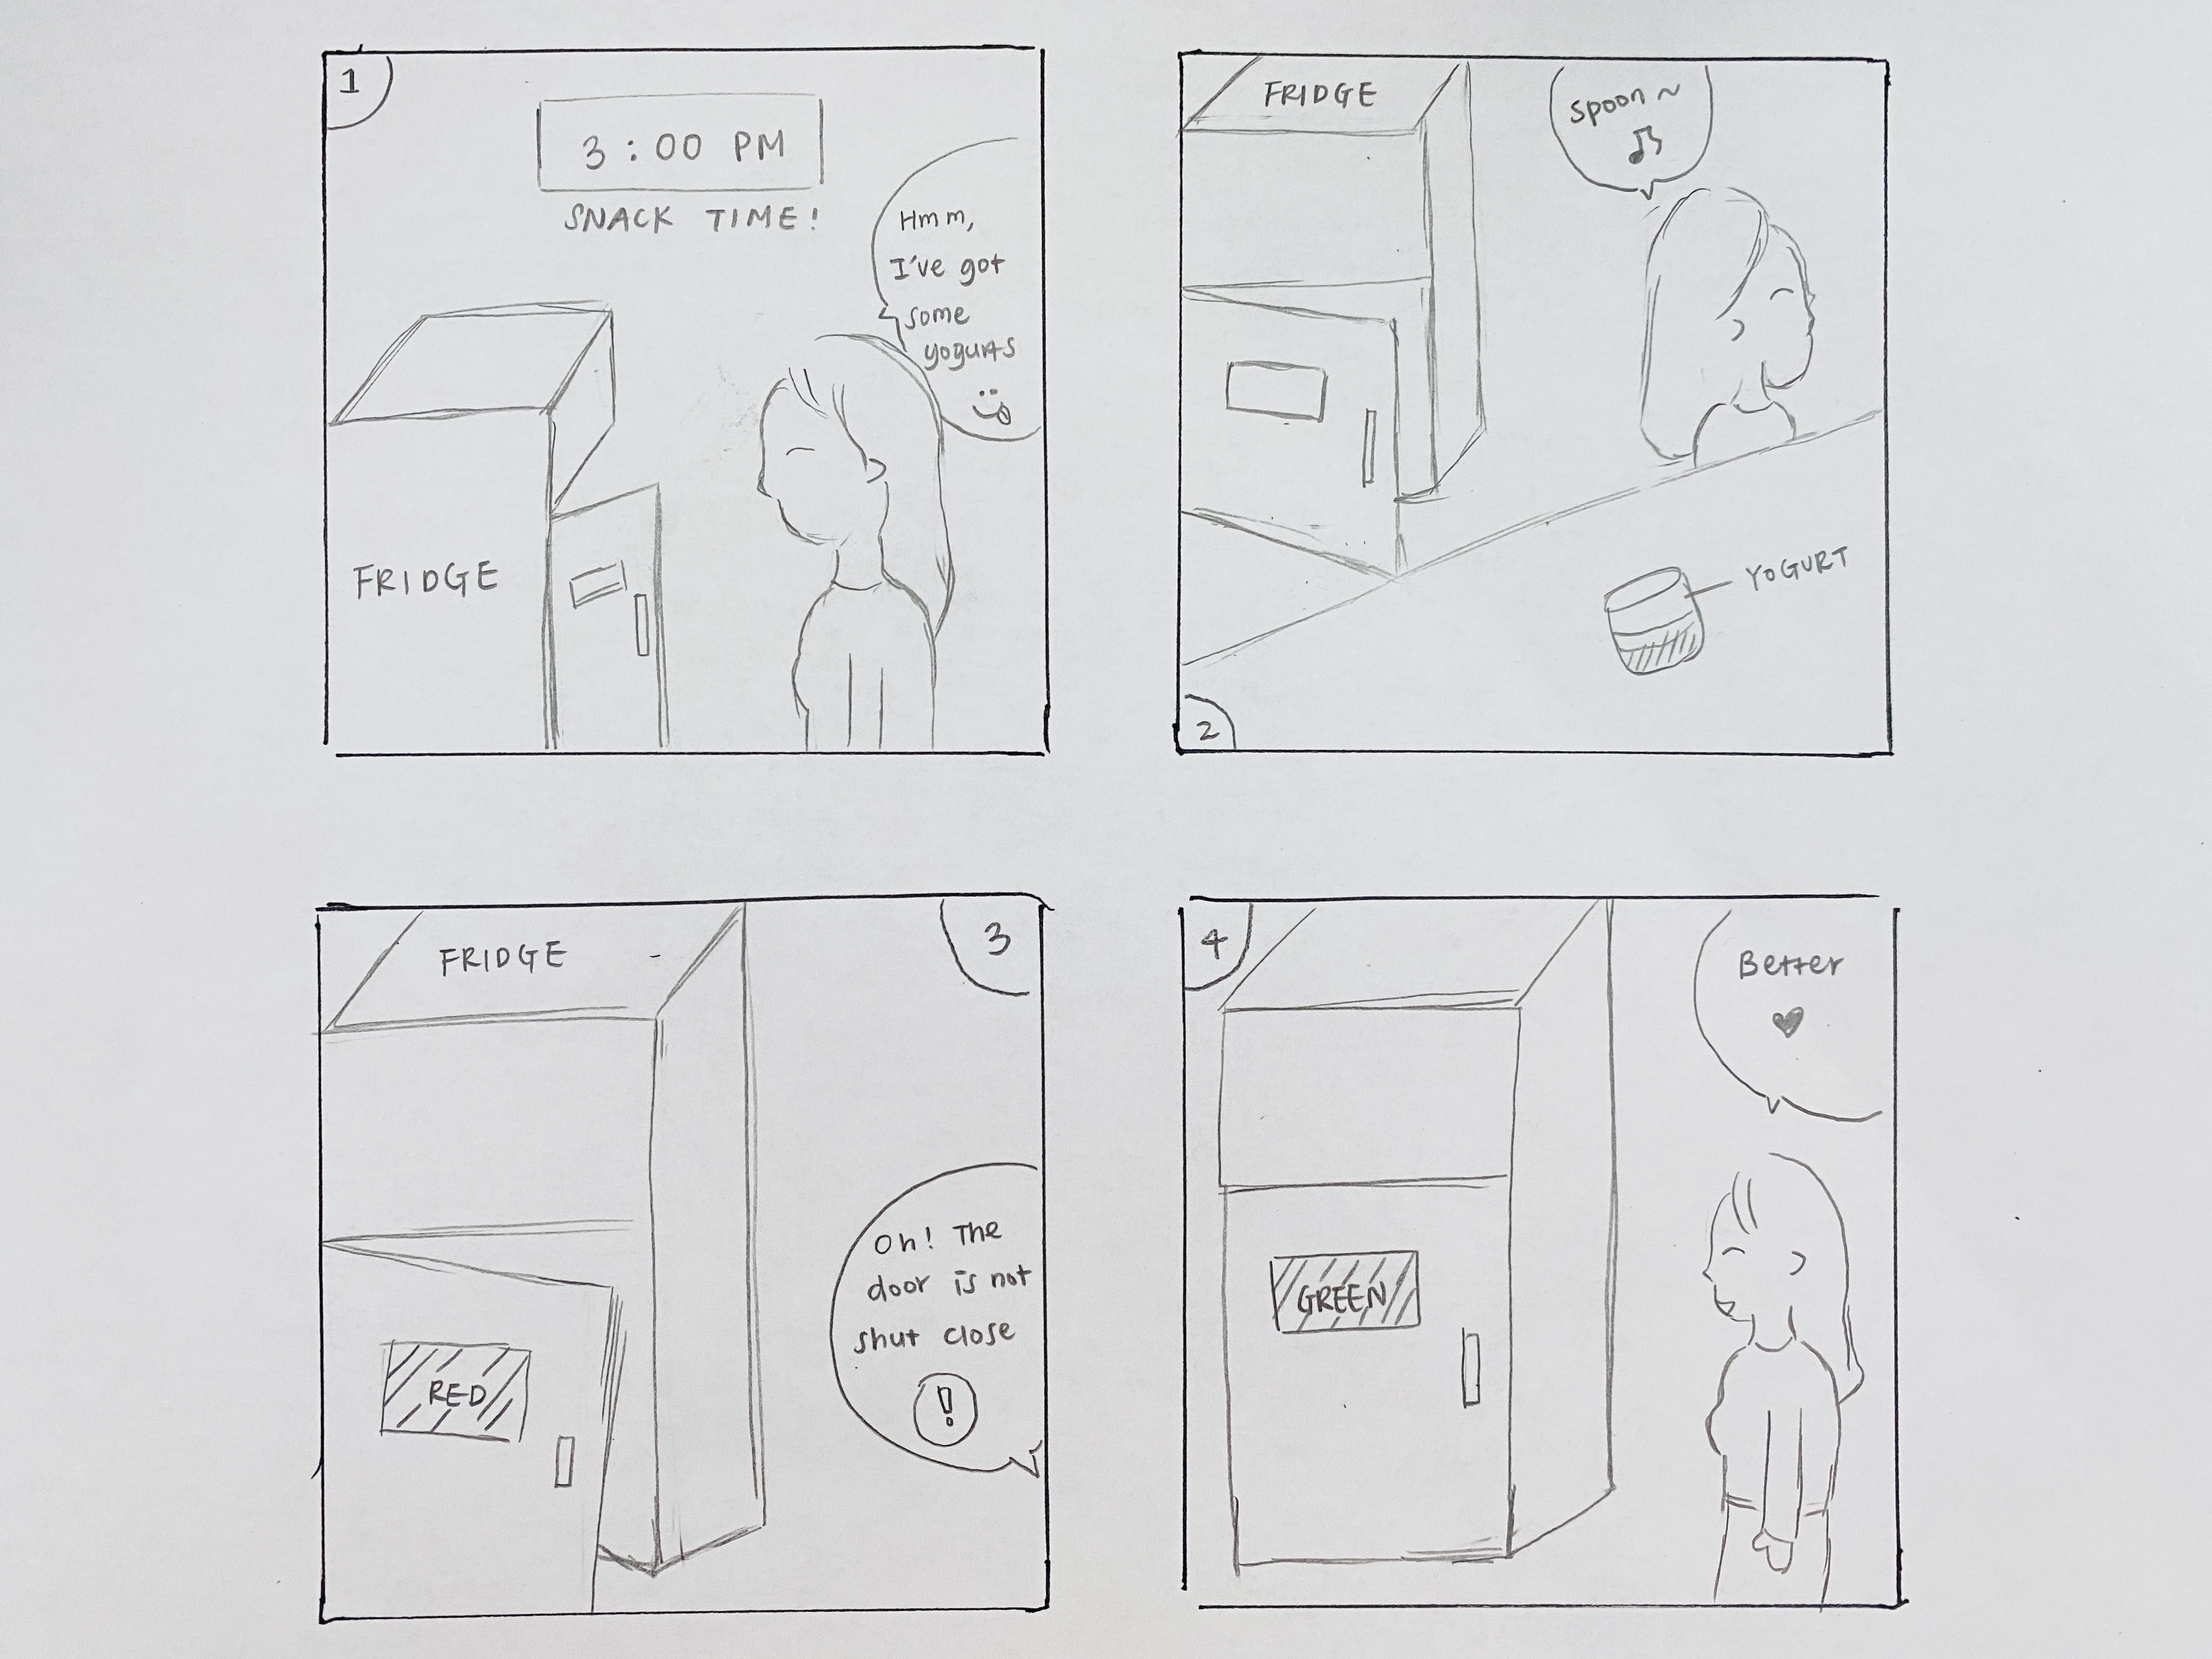 1
3:00 PM
SNACK TIME!
Hmm,
I've got
some
yogurts
FRIDGE
FRIDGE
Spoon ~
YOGURT
2
FRIDGE
3
Oh! The
door is not
shut close
!
RED
4
Better
GREEN